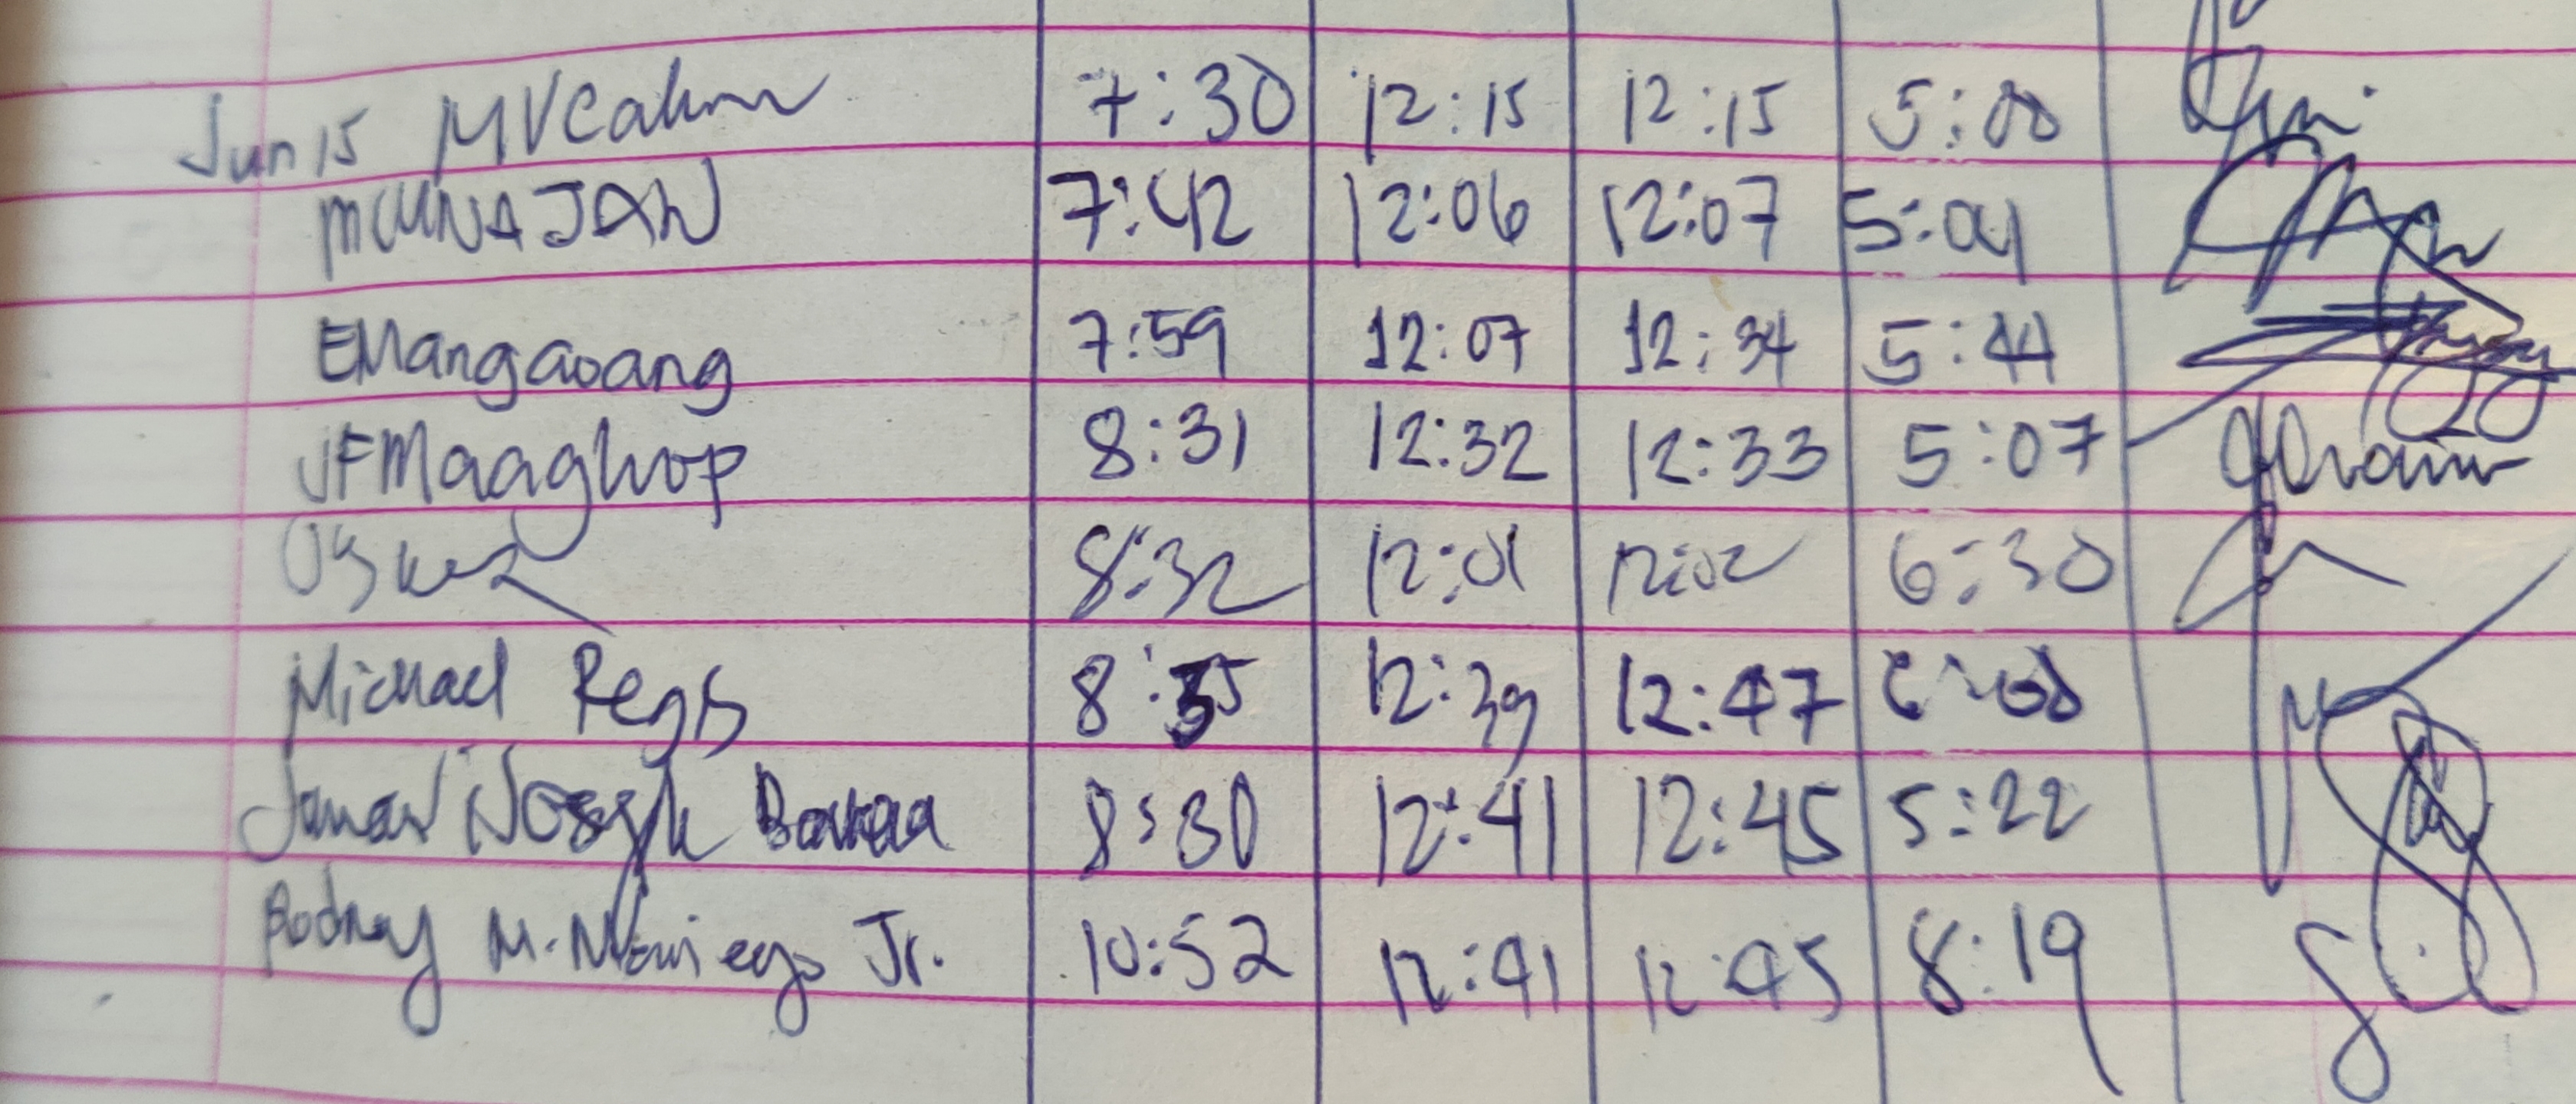 Jun 15 7:30 12:15 12:15 5:00
7:42 12:06 12:07 5:04
EMangaoang 7:59 12:07 12:34 5:44
JFMaaghop 8:31 12:32 12:33 5:07
8:32 12:01 12:02 6:30
Michael Regis 8:35 12:39 12:47 6:08
Joseph 8:30 12:41 12:45 5:22
Rodney M. Jr. 10:52 12:41 12:45 8:19